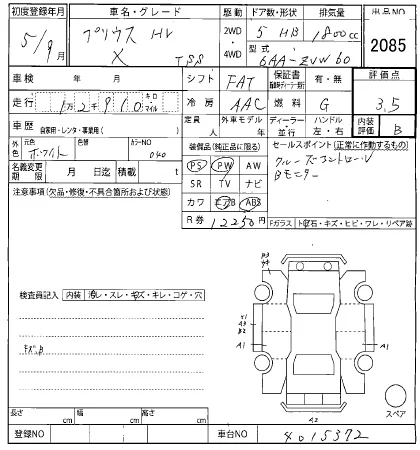 初度登録年月 車名・グレード 駆動 ドア数・形状 排気量 出品NO
5/9月 プリウス HV 2WD 4WD 5 HB 1800cc 2085
X TSS 型式 6AA-ZVW60
車検 年 月 シフト FAT 保証書 有・無 評価点
走行 1万2千910 キロ マイル 冷房 AAC 燃料 G 3.5
車歴 自家用・レンタ・事業用( ) 定員 人 外車モデル年 ディーラー 並行 ハンドル 左・右 内装評価 B
外色 元色 ホワイト 色替 カラーNO 040
装備品(純正品に限る) セールスポイント(正常に作動するもの)
名義変更期限 月 日迄 積載 t
PS PW AW クルーズコントロール
SR TV ナビ Bモニター
注意事項(欠品・修復・不具合箇所および状態)
カワ エアB ABS
R券 12250円
Fガラス ト(飛石・キズ・ヒビ・ワレ・リペア跡
検査員記入 内装 汚レ・スレ・キズ・キレ・コゲ・穴
A1
A1
A2
スペア
長さ cm 幅 cm 高さ cm
登録NO 車台NO 4015372